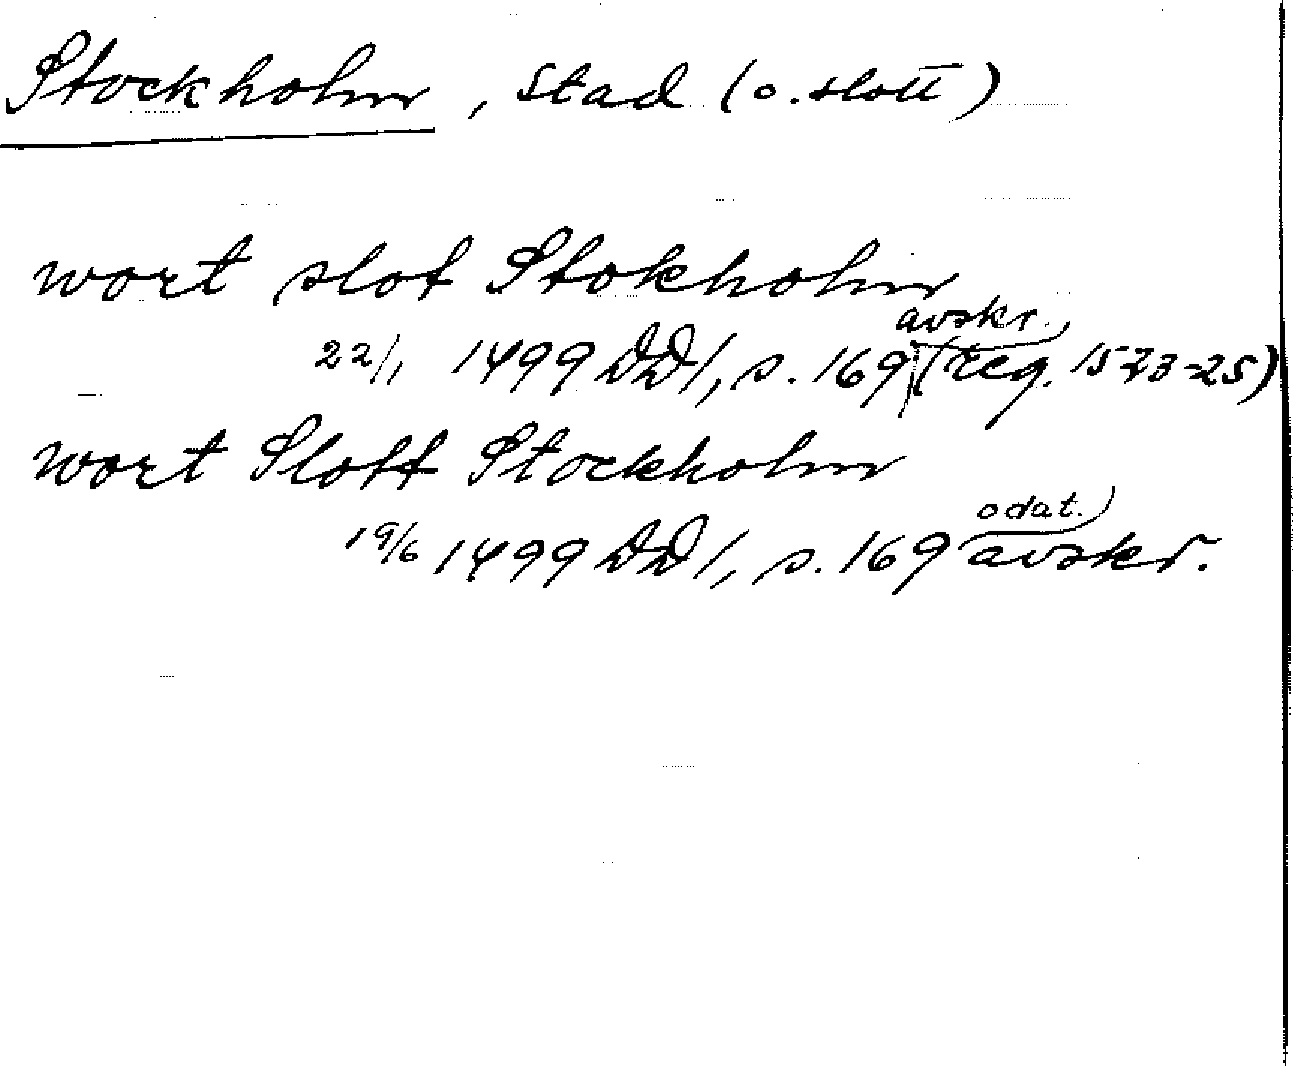 Stockholm, Stad (o. slott)
wort slot Stokholm
avskr.
22/1 1499 DD1, s. 169 (reg. 1523-25)
wort Slott Stockholm
odat.
19/6 1499 DD1, s. 169 avskr.